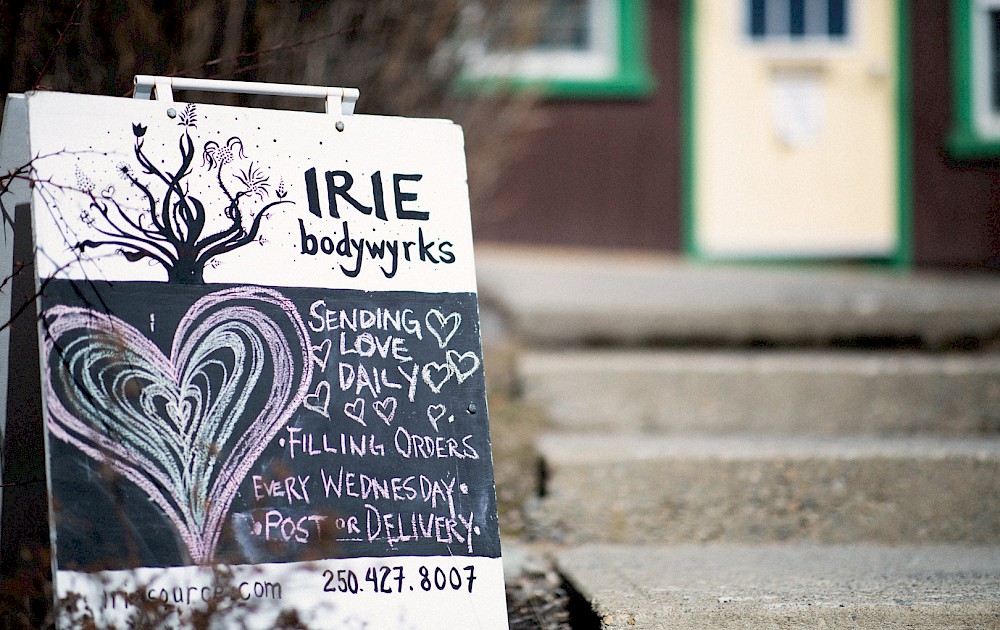 IRIE
bodywyrks
SENDING
LOVE
DAILY
• FILLING ORDERS
EVERY WEDNESDAY •
• POST OR DELIVERY •
250.427.8007